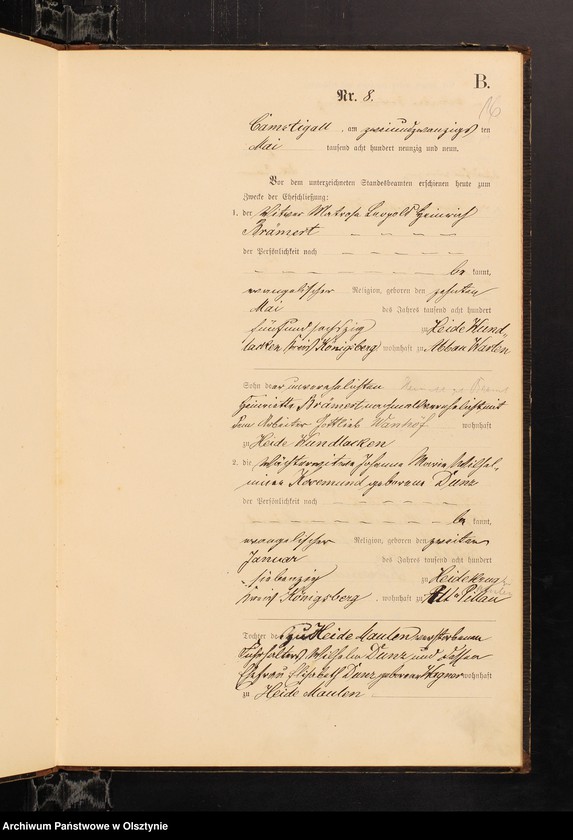 B.
Nr. 8.
16
Camstigall, am zweiundzwanzigs ten
Mai tausend acht hundert neunzig und neun.
Vor dem unterzeichneten Standesbeamten erschienen heute zum
Zwecke der Eheschließung:
1. der Witwer Matrose Leopold Heinrich
Brämert
der Persönlichkeit nach
be kannt,
evangelischer Religion, geboren den zehnten
Mai des Jahres tausend acht hundert
fünfundsechszig zu Heide Wund-
lacken Kreis Königsberg, wohnhaft zu Abbau Kaxlen
Sohn der unverehelichten
Henriette Brämert nachmals verehelicht mit
dem Arbeiter Gottlieb Wanhöf wohnhaft
zu Heide Wundlacken
2. die Wächterwitwe Johanne Marie Wilhel-
mine Rosemund geborene Dunz
der Persönlichkeit nach
be kannt,
evangelischer Religion, geboren den zweiten
Januar des Jahres tausend acht hundert
siebenzig zu Heidekrug
Kreis Königsberg, wohnhaft zu Alt-Pillau
Tochter des zu Heide Maulen verstorbenen
Wilhelm Dunz und dessen
Ehefrau Elisabeth Dunz geborene Wegner wohnhaft
zu Heide Maulen
Archiwum Państwowe w Olsztynie